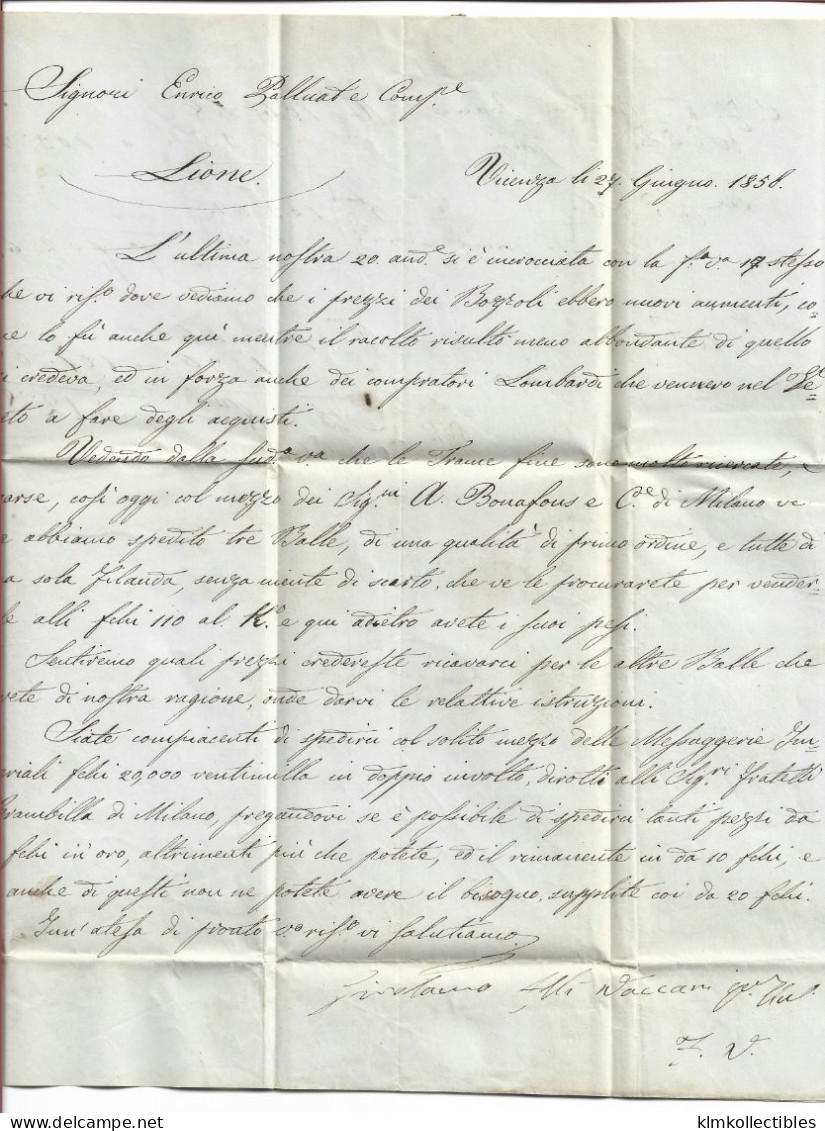 Signori Enrico Palluat e Comp.e
Lione.
Vicenza li 27. Giugno. 1858.
L'ultima nostra 20 and.e si è incrociata con la f.a v.a 17 stesso
he vi rifs.o dove vediamo che i prezzi dei Bozzoli ebbero nuovi aumenti, co=
e lo fù anche quì mentre il racolto risultò meno abbondante di quello
i credeva, ed in forza anche dei compratori Lombardi che vennero nel Ve=
eto a fare degli acquisti.
Vedendo dalla sud.a v.a che le Trame fine sono molto ricercate, e
arse, così oggi col mezzo dei Sig.ni A. Bonafous e C.e di Milano ve
e abbiamo spedito tre Balle, di una qualità di primo ordine, e tutte di
a sola Filanda, senza niente di scarto, che ve le procurarete per vender=
e alli fchi 110 al K.o e qui adietro avete i suoi pesi.
Sentiremo quali prezzi credereste ricavarci per le altre Balle che
vete di nostra ragione, onde darvi le relattive istruzioni.
Siate compiacenti di spedirci col solito mezzo delle Messaggerie Im=
eriali fchi 20,000 ventimilla in doppio involto, diretti alli Sig.ri Fratelli
Brambilla di Milano, pregandovi se è possibile di spedirci tanti pezzi da
fchi in oro, altrimenti più che potete, ed il rimanente in da 10 fchi, e
anche di questi non ne potete avere il bisogno, supplite coi da 20 fchi.
In' atesa di pronto v.o rifs.o vi salutiamo.
Girolamo Vaccari
F. V.
klmkollectibles